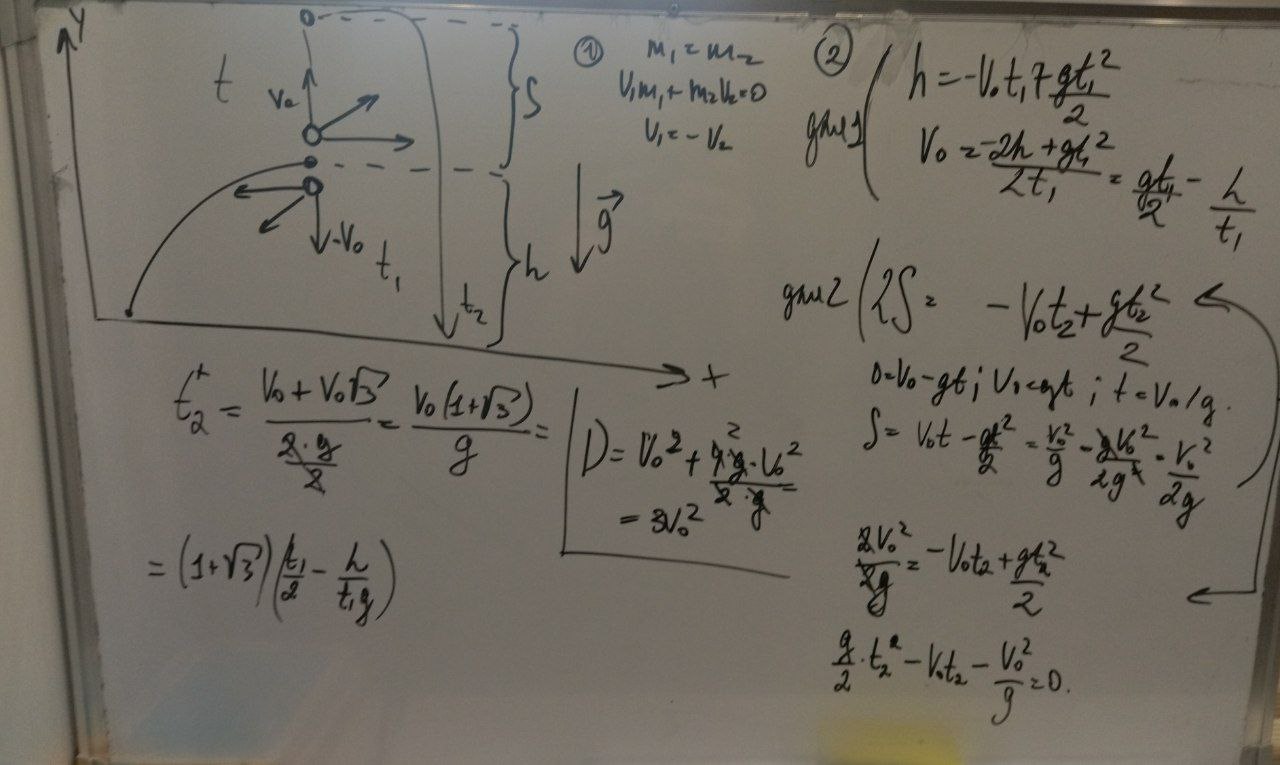 Y
t
V₀
S
-V₀
t₁
h
t₂
g⃗
x
①
m₁ = m₂
V₁m₁ + m₂V₂ = 0
V₁ = - V₂
②
для 1
h = -V₀t₁ + gt₁²/2
V₀ = (-2h + gt₁²)/2t₁ = gt₁/2 - h/t₁
для 2
2S = -V₀t₂ + gt₂²/2
0 = V₀ - gt ; V₀ = gt ; t = V₀/g.
S = V₀t - gt²/2 = V₀²/g - gV₀²/2g² = V₀²/2g
2V₀²/2g = -V₀t₂ + gt₂²/2
g/2 · t₂² - V₀t₂ - V₀²/g = 0.
t₂⁺ = (V₀ + V₀√3)/(2·g/2) = V₀(1+√3)/g =
D = V₀² + 4g·V₀²/2·g =
= 3V₀²
= (1+√3)(t₁/2 - h/t₁g)